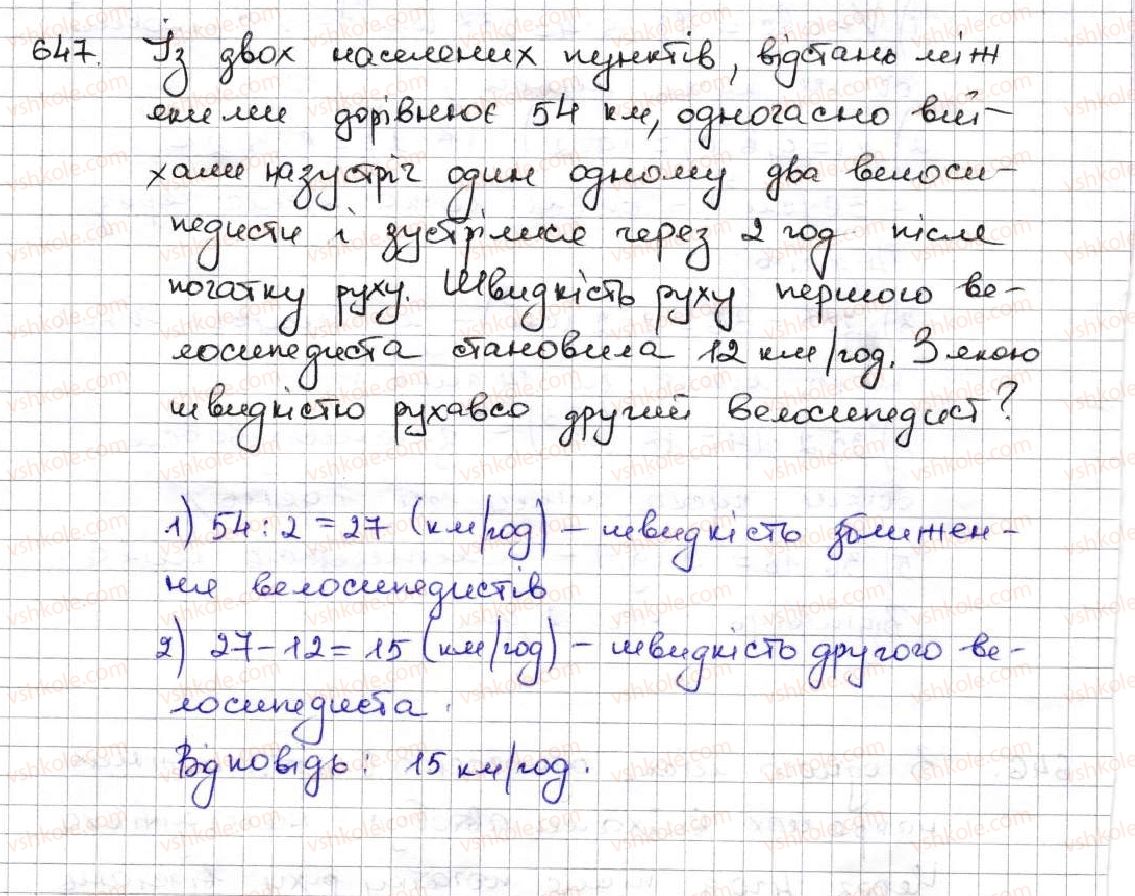 647. Із двох населених пунктів, відстань між
якими дорівнює 54 км, одночасно виї-
хали назустріч один одному два велоси-
педисти і зустрілися через 2 год після
початку руху. Швидкість руху першого ве-
лосипедиста становила 12 км/год. З якою
швидкістю рухався другий велосипедист?
1) 54 : 2 = 27 (км/год) – швидкість зближен-
ня велосипедистів
2) 27 – 12 = 15 (км/год) – швидкість другого ве-
лосипедиста.
Відповідь: 15 км/год.